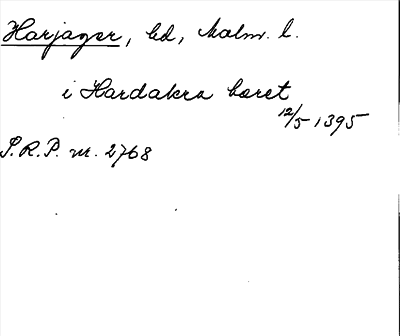 Harjager, hd, Malm. l.
i Hardakra hæret
12/5 1395
S.R.P. nr. 2768